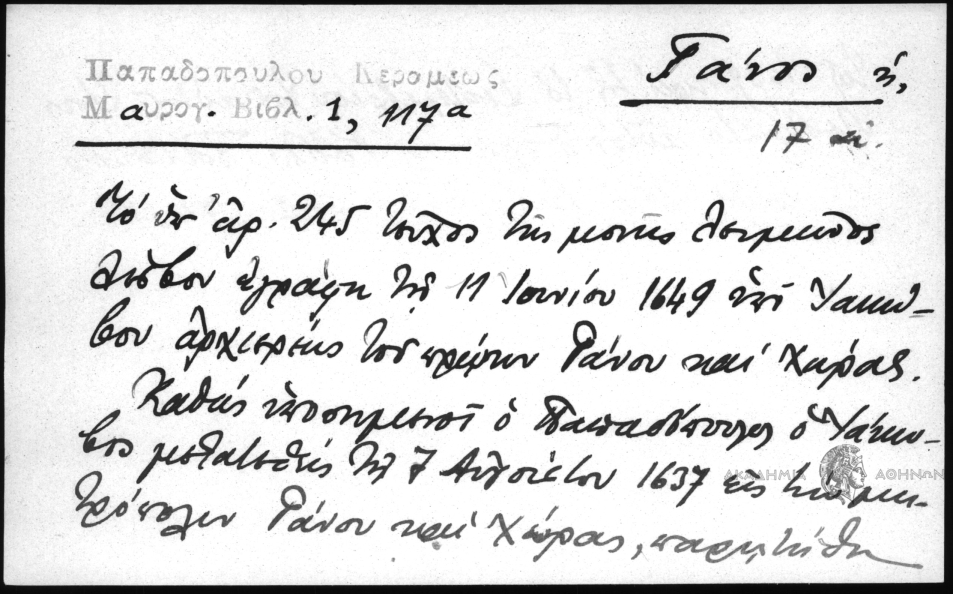 Παπαδοπουλου Κεραμεως
Μαυρογ. Βιβλ. 1, 117α
Γάνος ἡ,
17 αἰ.
Τό ὑπ' ἀρ. 245 τεῦχος τῆς μονῆς Λειμῶνος
Λέσβου ἐγράφη τῇ 11 Ἰουνίου 1649 ὑπό Ἰακώ-
βου ἀρχιερέως τοῦ πρώην Γάνου καί Χώρας.
Καθώς ὑποσημειοῖ ὁ Παπαδόπουλος ὁ Ἰάκω-
βος μετατεθείς τῇ 7 Αὐγούστου 1637 εἰς τήν μη-
τρόπολιν Γάνου καί Χώρας, παρῃτήθη
ΑΚΑΔΗΜΙΑ ΑΘΗΝΩΝ